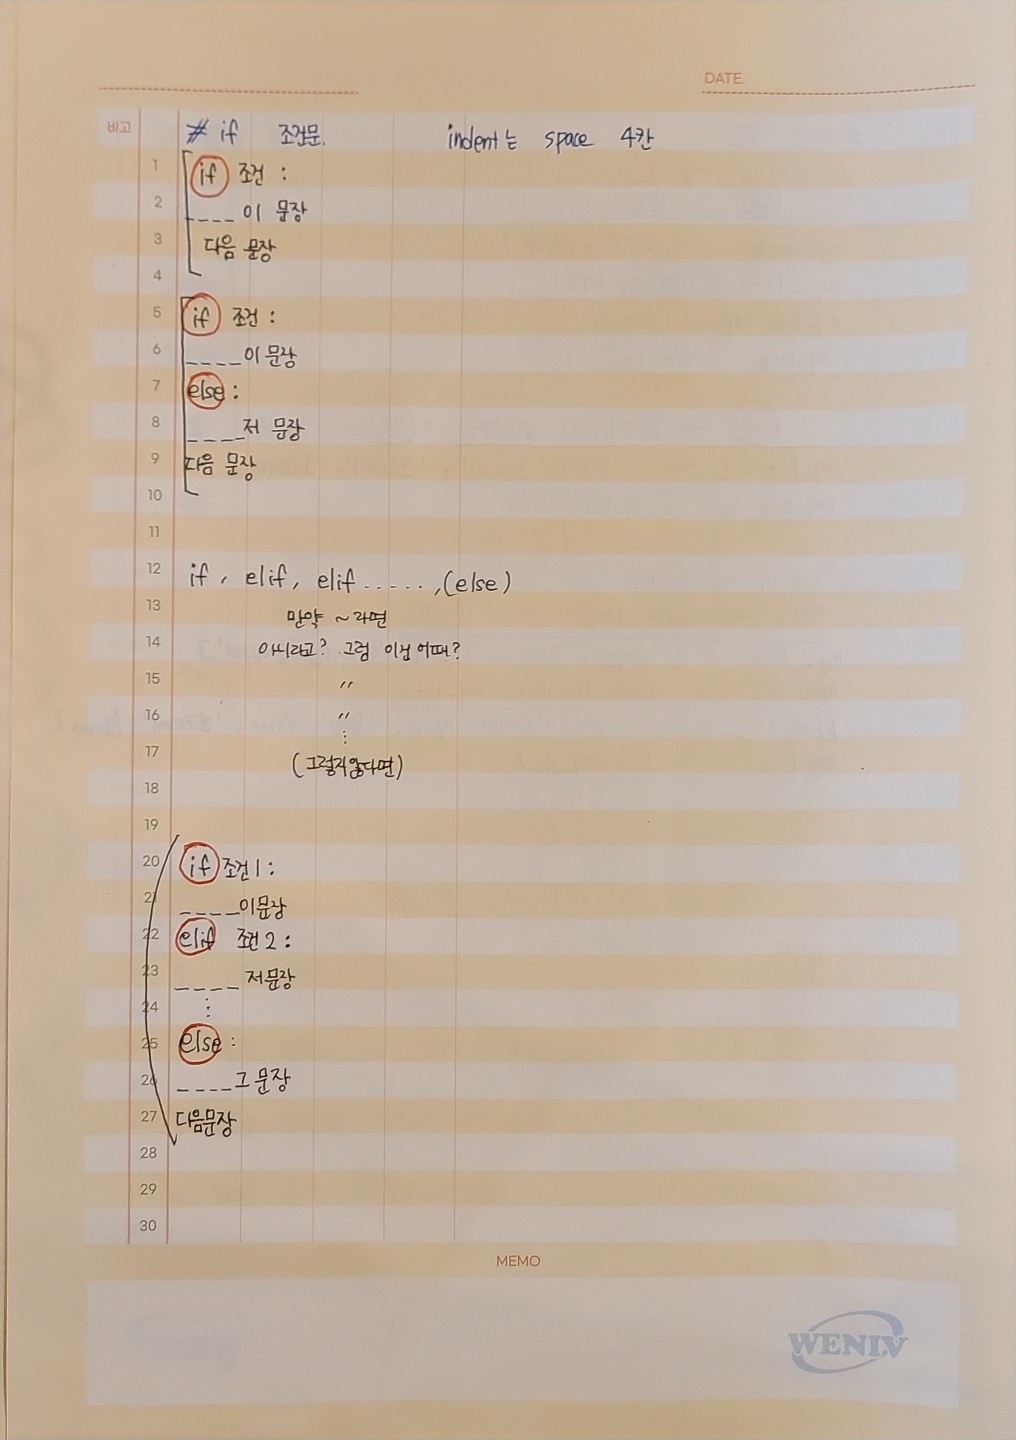 DATE.
비고
# if 조건문. indent는 space 4칸
1 if 조건 :
2 ____ 이 문장
3 다음 문장
4
5 if 조건 :
6 ____이 문장
7 else :
8 ____저 문장
9 다음 문장
10
11
12 if, elif, elif ......,(else)
13 만약 ~라면
14 아니라고? 그럼 이건 어때?
15 〃
16 〃
⋮
17 (그렇지않다면)
18
19
20 if 조건1:
21 ____이문장
22 elif 조건2:
23 ____ 저문장
24 ⋮
25 else :
26 ____그 문장
27 다음문장
28
29
30
MEMO
WENIV